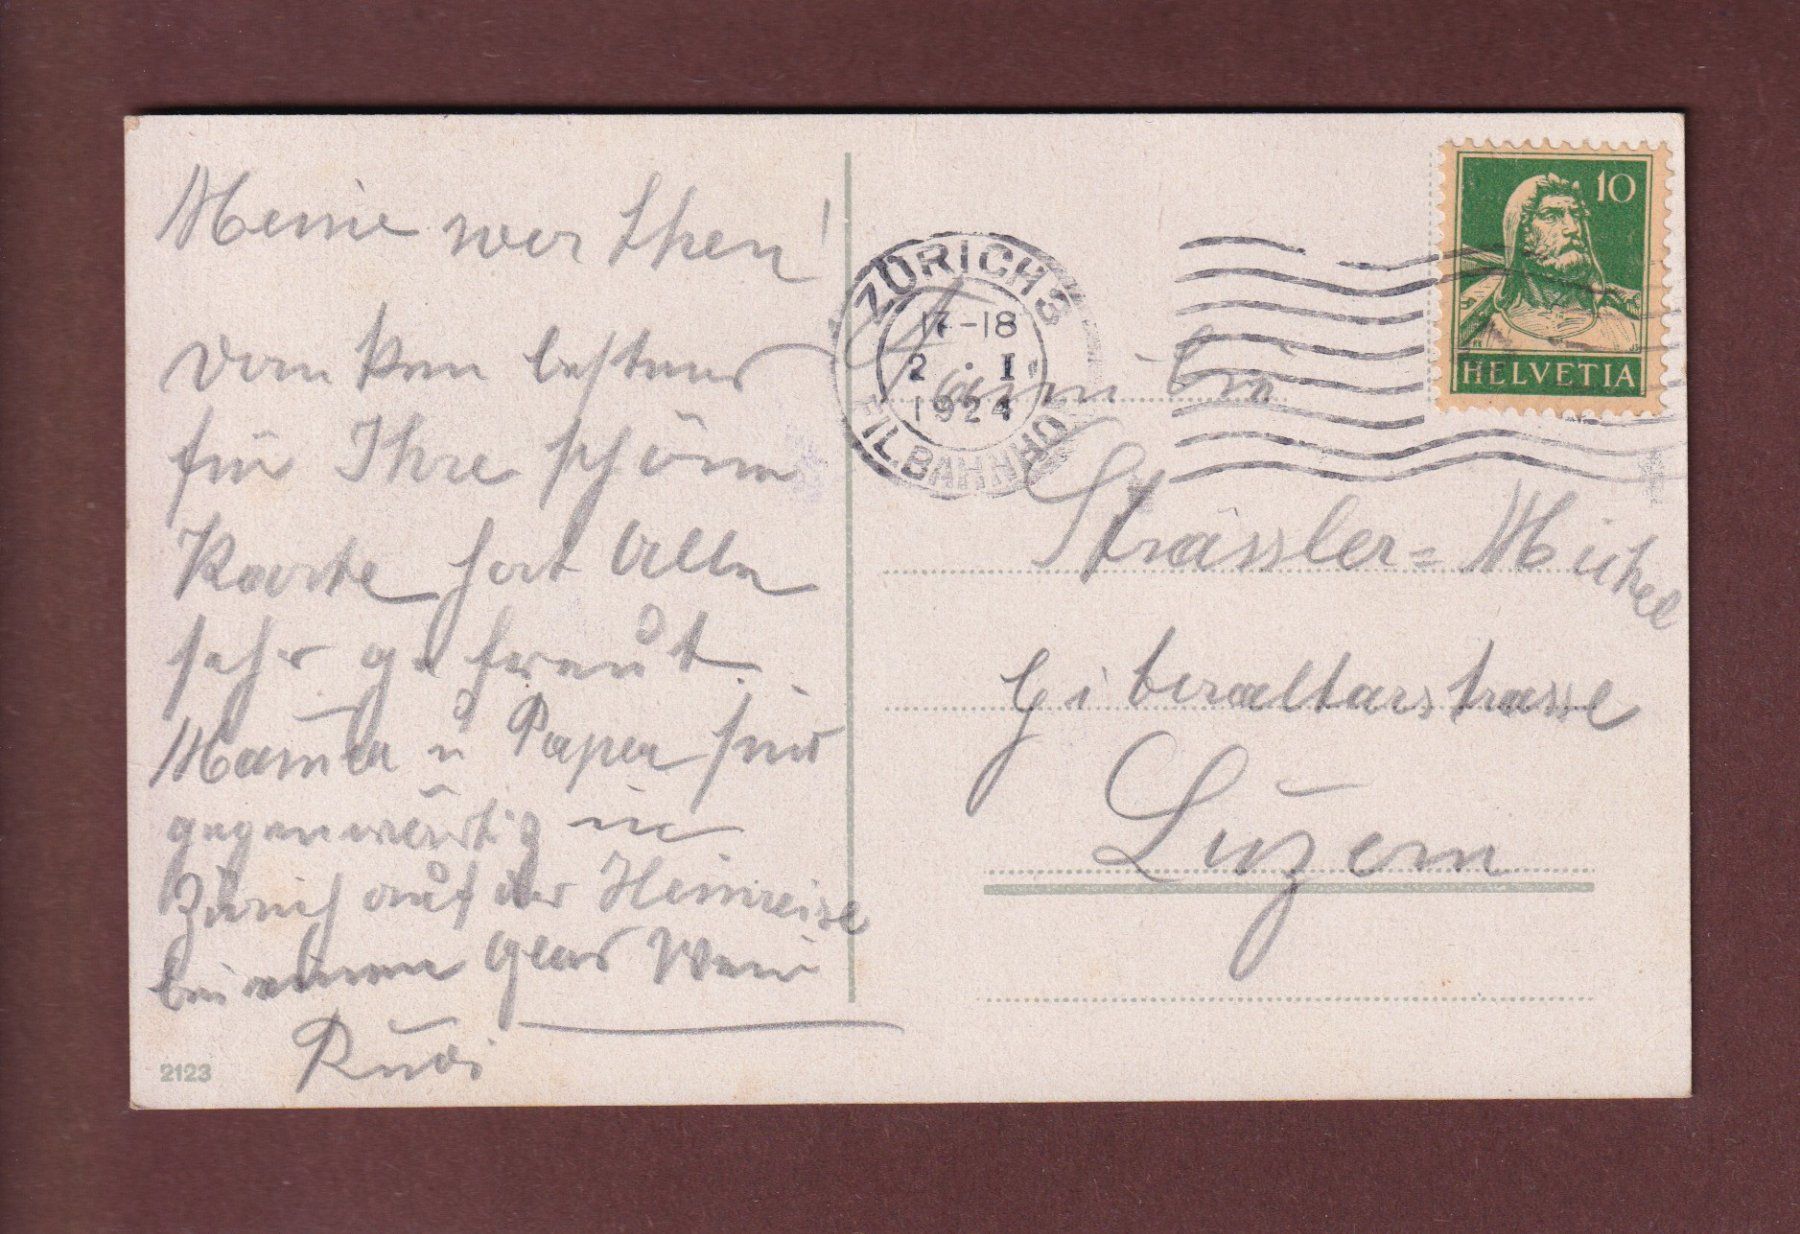 Meine werthen!
Danken bestens
für Ihre schöne
Karte hat Alle
sehr gefreut.
Mama u Papa sind
gegenwärtig in
Zürich auf der Heimreise
bei einem Glas Wein
Rudi
2123
ZÜRICH 3
17-18
2. I
1924
EILBAHNHOF
10
HELVETIA
Familie
Strässler=Michel
Giberaltarstrasse
Luzern